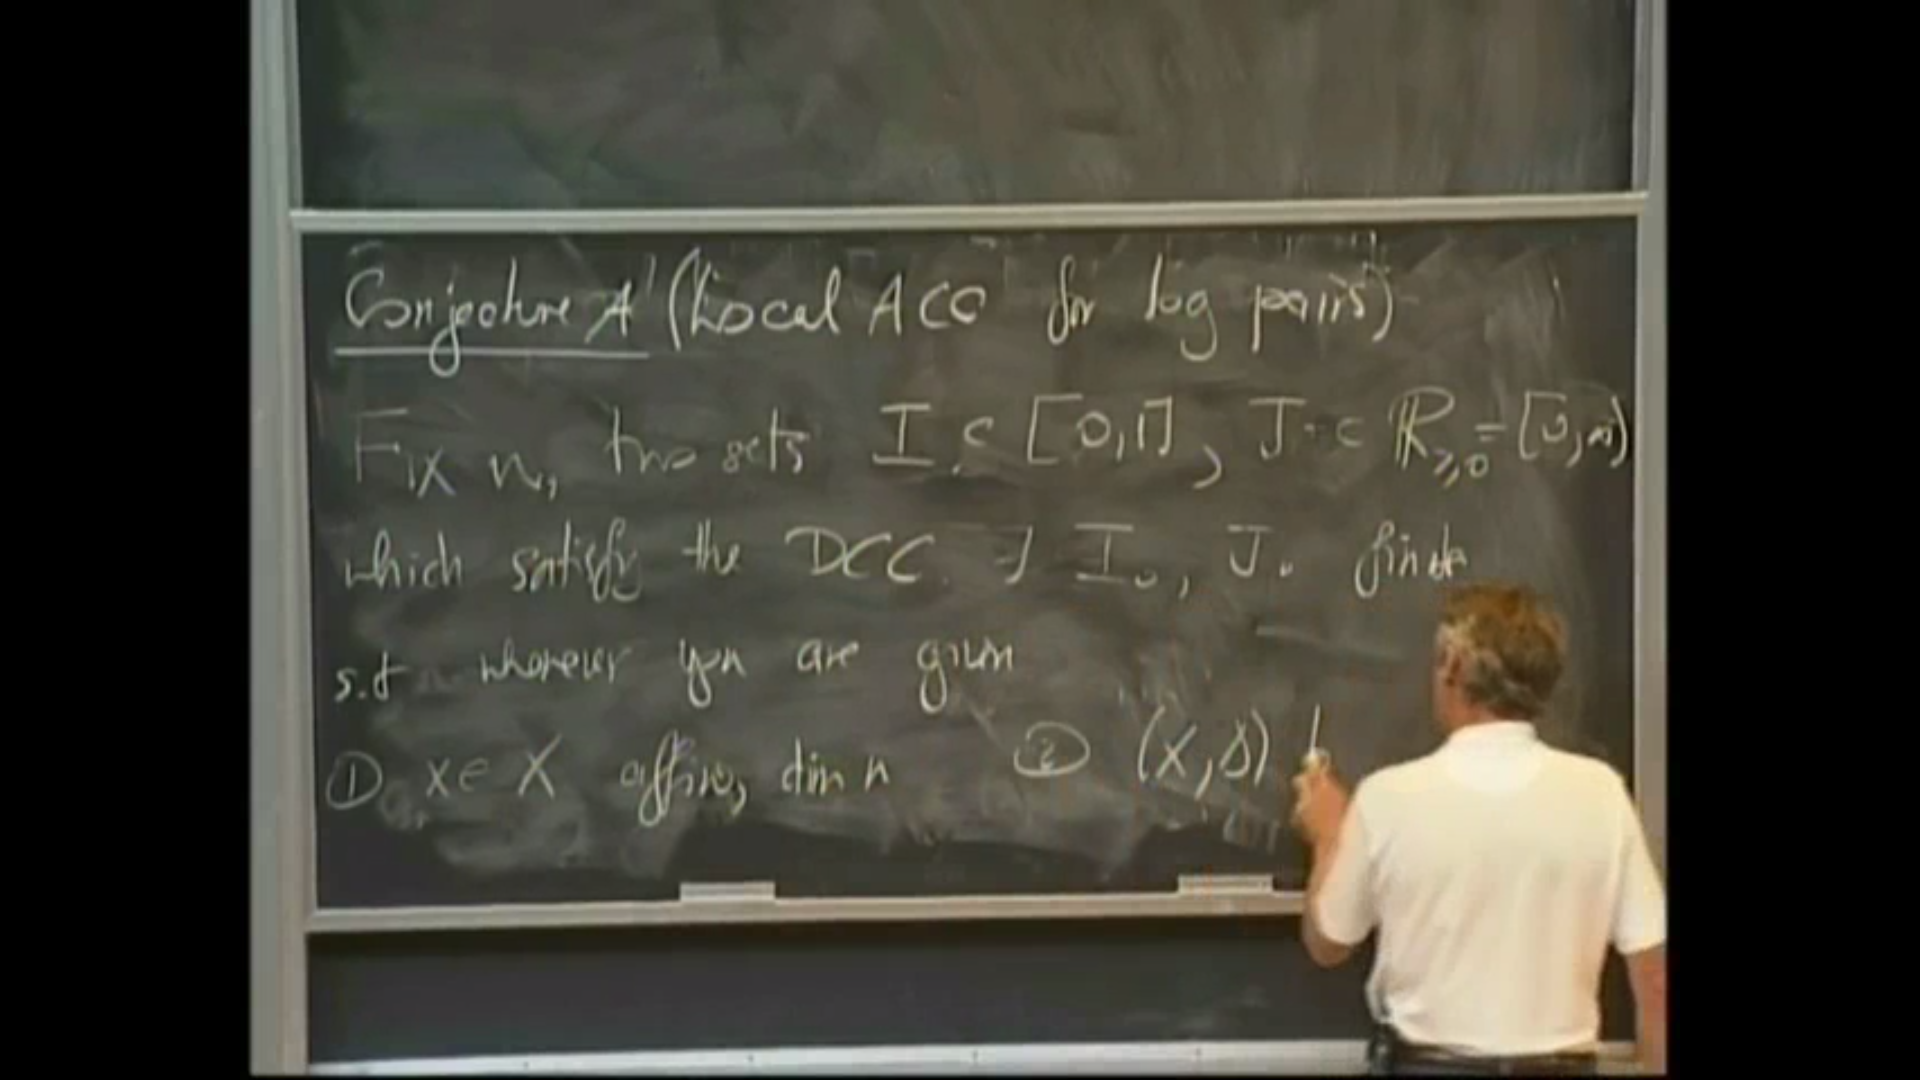 Conjecture A' (Local ACC for log pairs)
Fix n, two sets I ⊂ [0,1], J ⊂ ℝ≥0 = [0,∞)
which satisfy the DCC. ∃ I₀, J₀ finite
s.t whenever you are given
① x ∈ X affine, dim n ② (X, Δ)